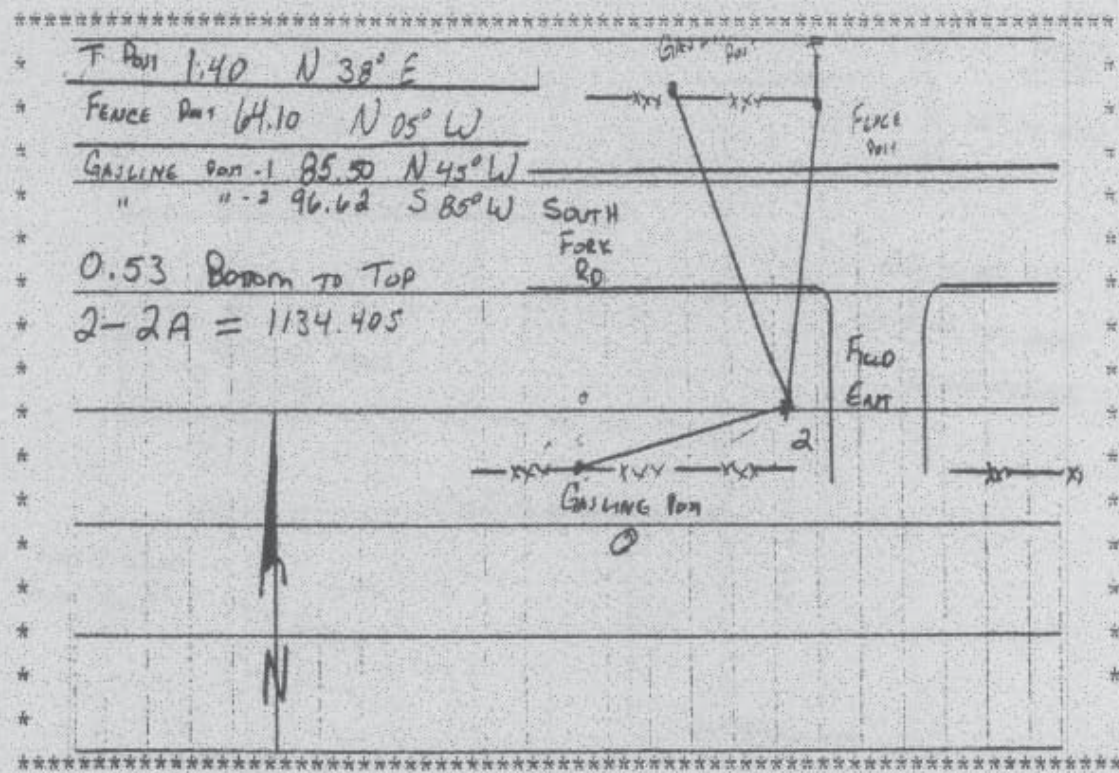 T. Post 1.40 N 38° E
FENCE Post 64.10 N 05° W
GASLINE Post -1 85.50 N 45° W
" " -2 96.62 S 85° W
0.53 Bottom TO TOP
2-2A = 1134.405
Post
FENCE
Post
SOUTH
FORK
RD
FIELD
ENT
2
GASLINE Post
N